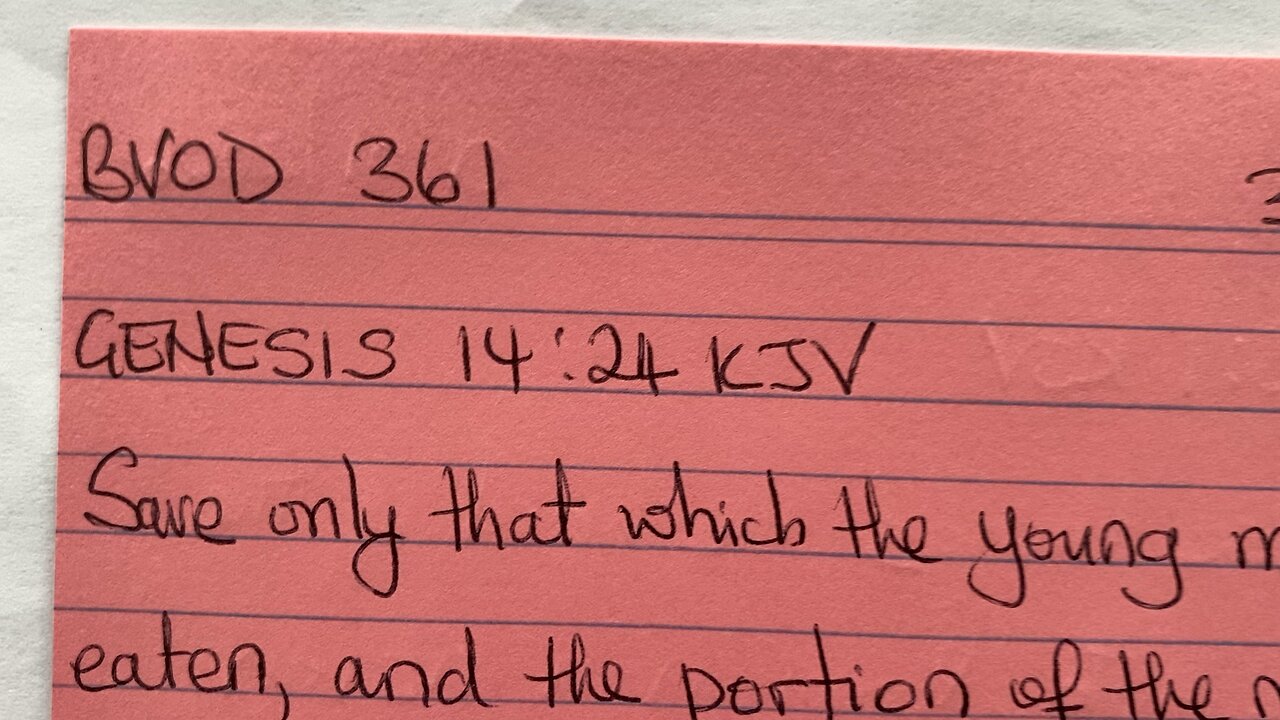 BVOD 361
GENESIS 14:24 KJV
Save only that which the young
eaten, and the portion of the